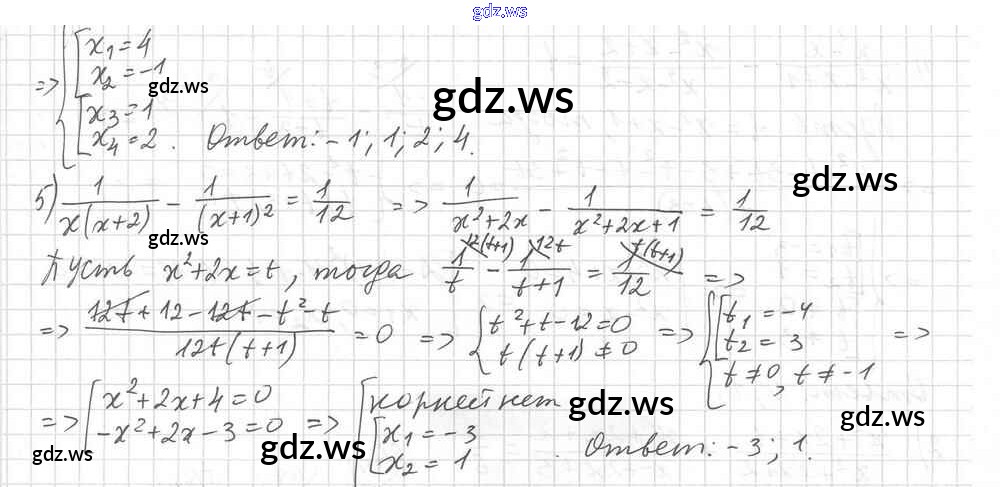 gdz.ws
=> { [ x₁ = 4
x₂ = -1
gdz.ws
[ x₃ = 1
x₄ = 2 . Ответ: -1; 1; 2; 4.
gdz.ws
gdz.ws
5) 1/(x(x+2)) - 1/(x+1)² = 1/12 => 1/(x²+2x) - 1/(x²+2x+1) = 1/12
gdz.ws
Пусть x²+2x=t, тогда 1/t ^12(t+1) - 1/(t+1) ^12t = 1/12 ^t(t+1) =>
=> (12t + 12 - 12t - t² - t)/(12t(t+1)) = 0 => { t²+t-12=0 t(t+1) ≠ 0 => { [ t₁ = -4 t₂ = 3 t ≠ 0, t ≠ -1 =>
=> [ x²+2x+4=0 -x²+2x-3=0 => [ корней нет [ x₁ = -3 x₂ = 1 . Ответ: -3; 1.
gdz.ws
gdz.ws
gdz.ws
gdz.ws